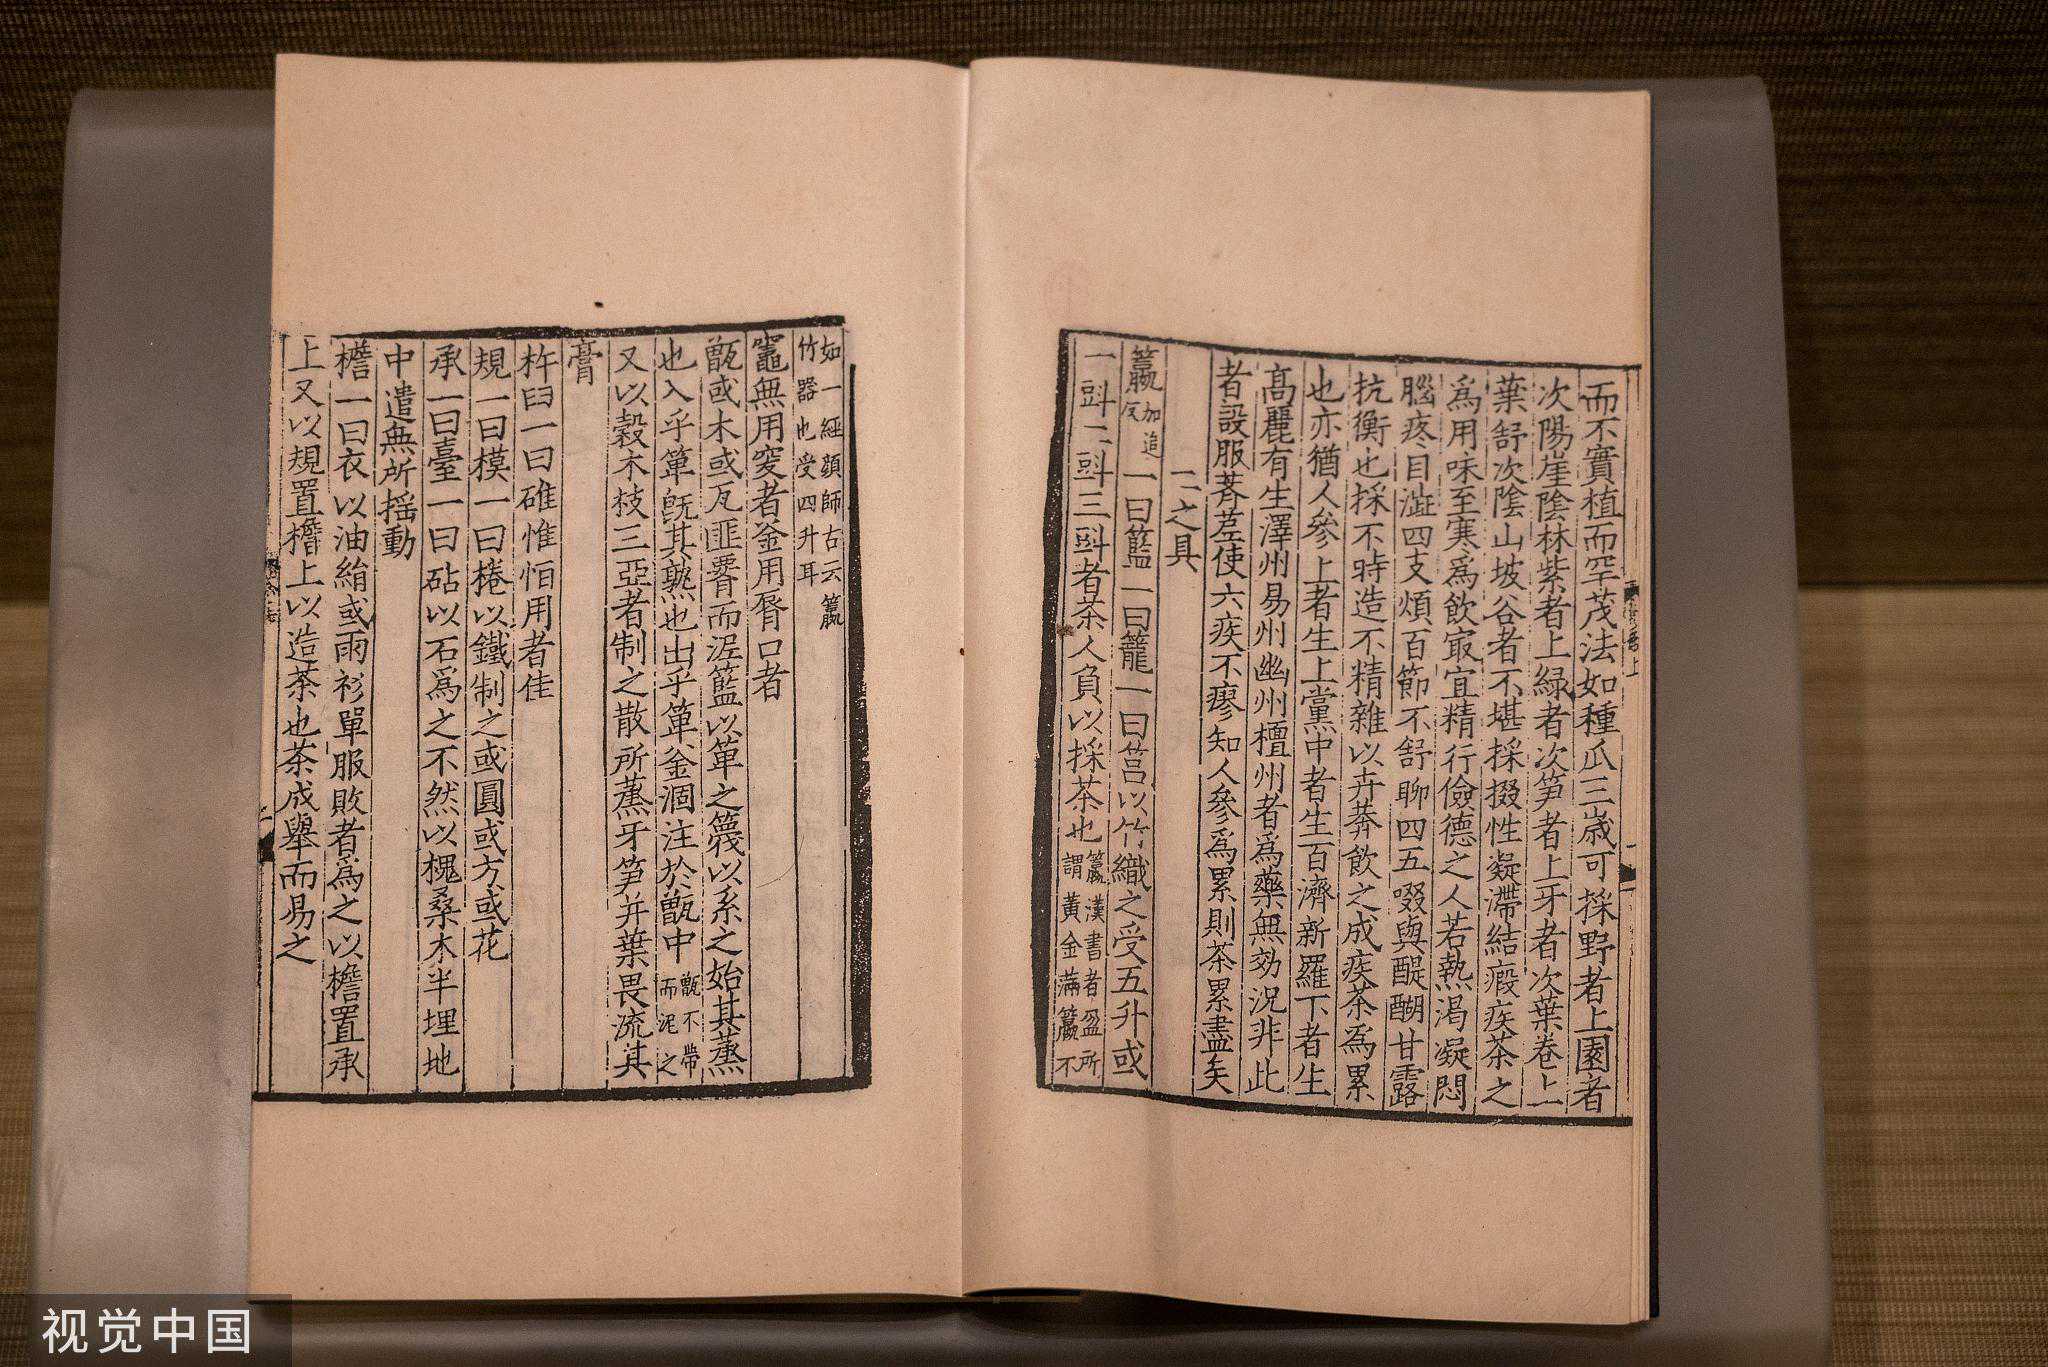 而不實植而罕茂法如種瓜三歳可採野者上園者
次陽崖陰林紫者上緑者次笋者上牙者次葉卷上
葉舒次陰山坡谷者不堪採掇性凝滯結瘕疾茶之
爲用味至寒爲飲冣宜精行儉德之人若熱渴凝悶
腦疼目澁四支煩百節不舒聊四五啜與醍醐甘露
抗衡也採不時造不精雜以卉莽飲之成疾茶爲累
也亦猶人參上者生上黨中者生百濟新羅下者生
髙麗有生澤州易州幽州檀州者爲藥無効況非此
者設服薺苨使六疾不瘳知人參爲累則茶累盡矣
二之具
籯加追反一曰籃一曰籠一曰筥以竹織之受五升或
一㪷二㪷三㪷者茶人負以採茶也籯漢書者盈所謂黃金滿籯不
如一經顔師古云籯竹器也受四升耳
竈無用窔者釜用脣口者
甑或木或瓦匪脣而泥籃以箄之篾以系之始其蒸
也入乎箄旣其熟也出乎箄釜涸注於甑中甑不帶而泥之
又以榖木枝三亞者制之散所蒸牙笋并葉畏流其
膏
杵臼一曰碓惟恒用者佳
規一曰模一曰棬以鐵制之或圓或方或花
承一曰臺一曰砧以石爲之不然以槐桑木半埋地
中遣無所揺動
檐一曰衣以油絹或雨衫單服敗者爲之以檐置承
上又以規置檐上以造茶也茶成舉而易之
視觉中国